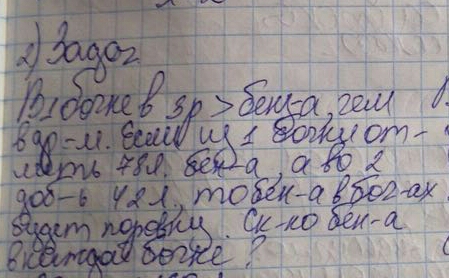 2) Задач
В 1 бочке в 3р > бенз-а, чем
в др-м. Если из 1 бочки от-
лить 78л. бен-а, а во 2
доб-ь 42л, то бен-а в боч-ах
будет поровну. Ск-ко бен-а
в каждой бочке?